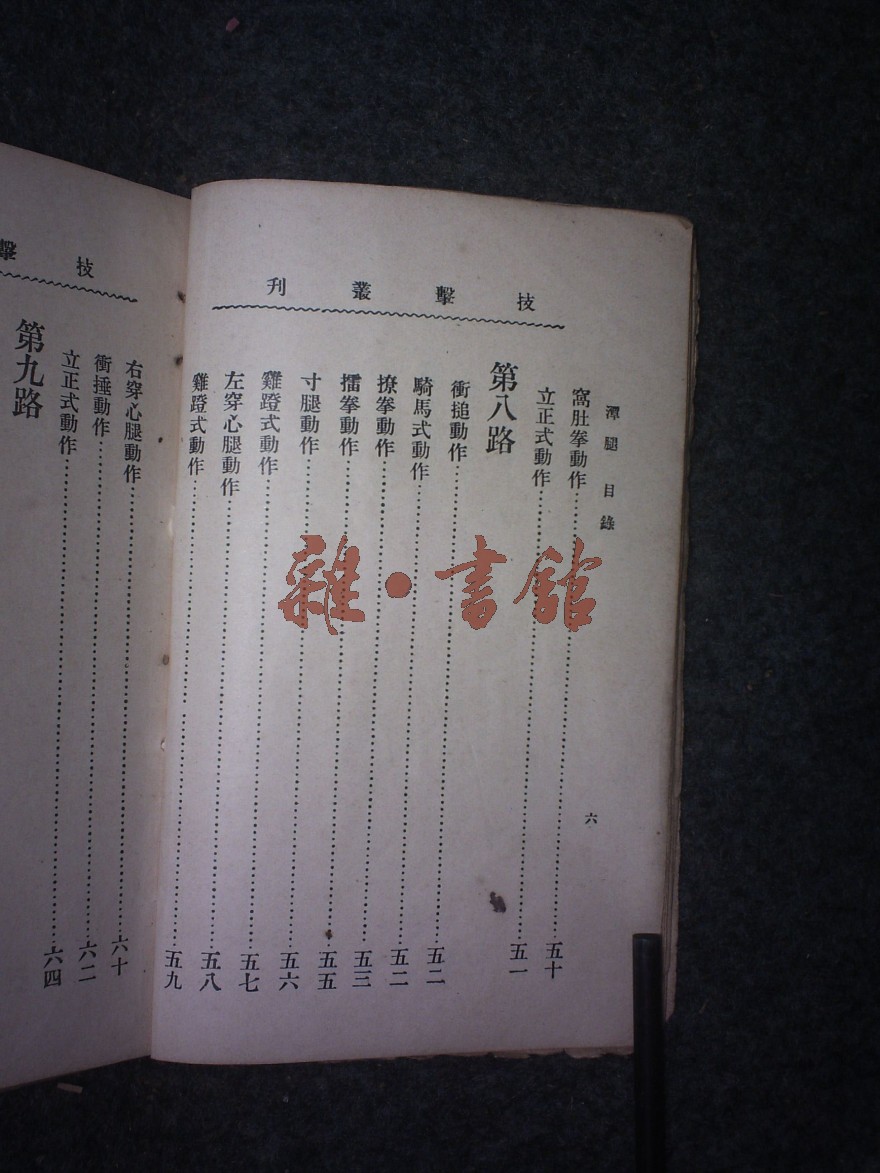 技擊叢刊
潭腿目錄
六
窩肚拳動作……五十
立正式動作……五一
第八路
衝搥動作……五二
騎馬式動作……五二
撩拳動作……五三
擂拳動作……五五
寸腿動作……五六
雞蹬式動作……五七
左穿心腿動作……五八
雞蹬式動作……五九
技擊
右穿心腿動作……六十
衝捶動作……六二
立正式動作……六四
第九路
雜·書館